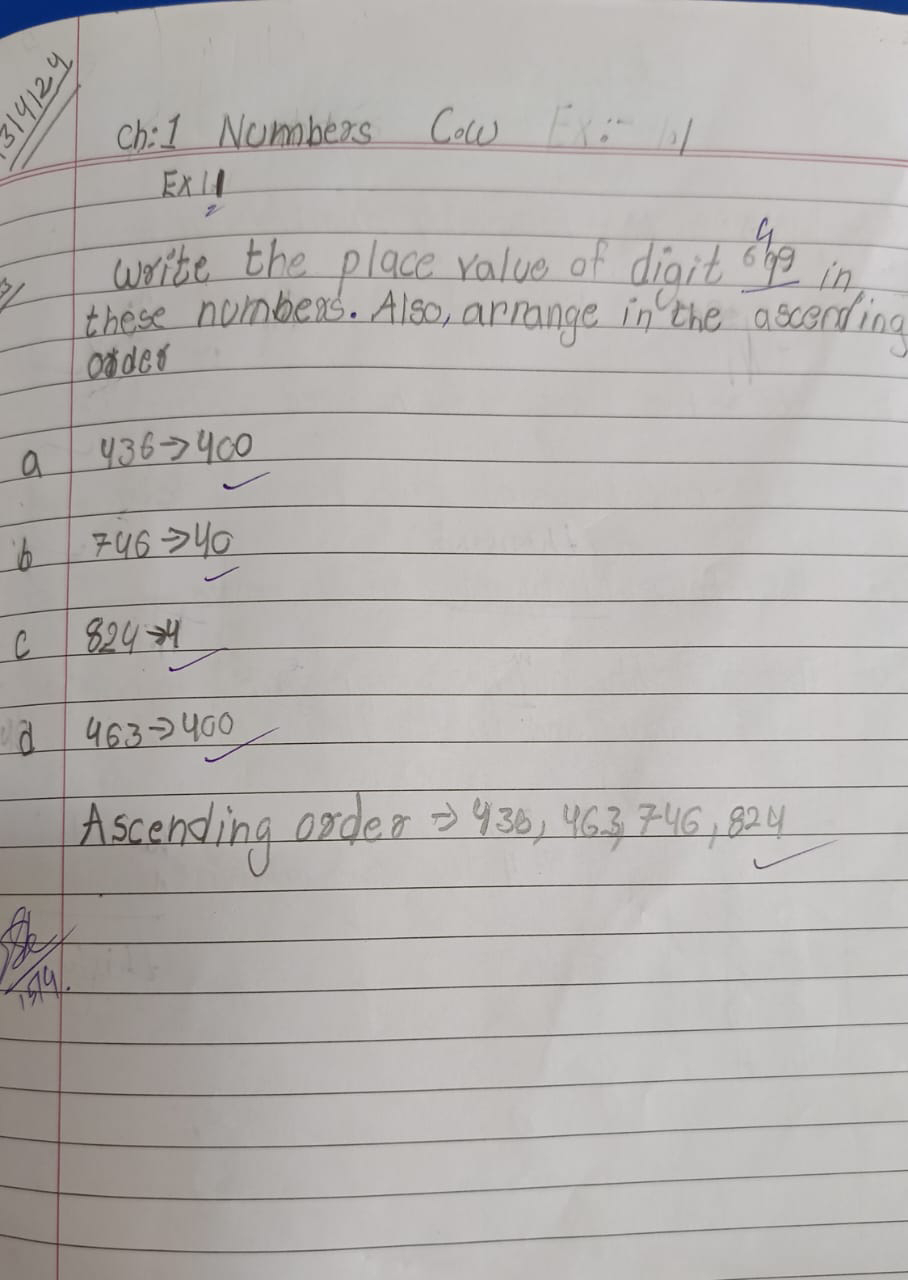 13/4/24
Ch:1 Numbers C.W Ex:- 1.1
Ex 1.1
Write the place value of digit "4" in
these numbers. Also, arrange in the ascending
order
a 436→400
b 746→40
c 824→4
d 463→400
Ascending order → 436, 463, 746, 824
15/4.